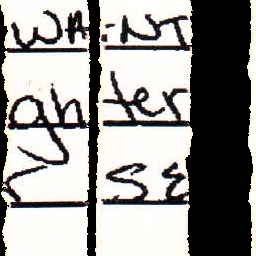 WA NT
gh ter
SE